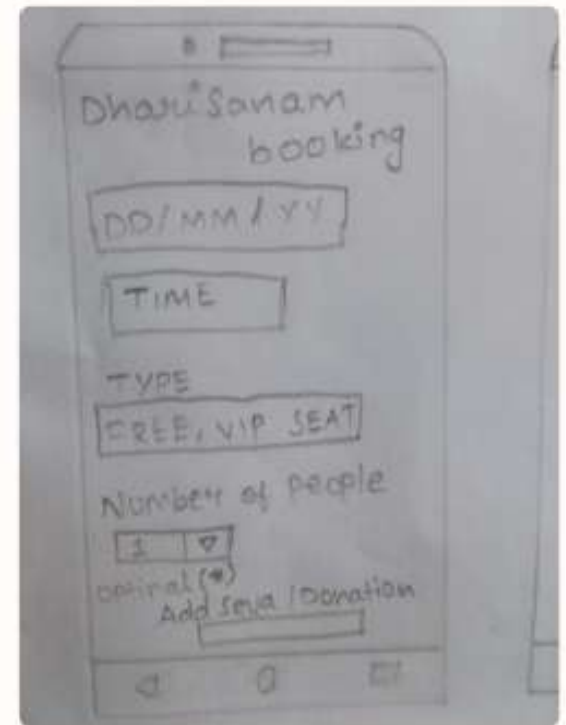 Dharisanam
booking
DD/MM/YY
TIME
TYPE
FREE, VIP SEAT
Number of people
1
optinal (*)
Add Seva / Donation